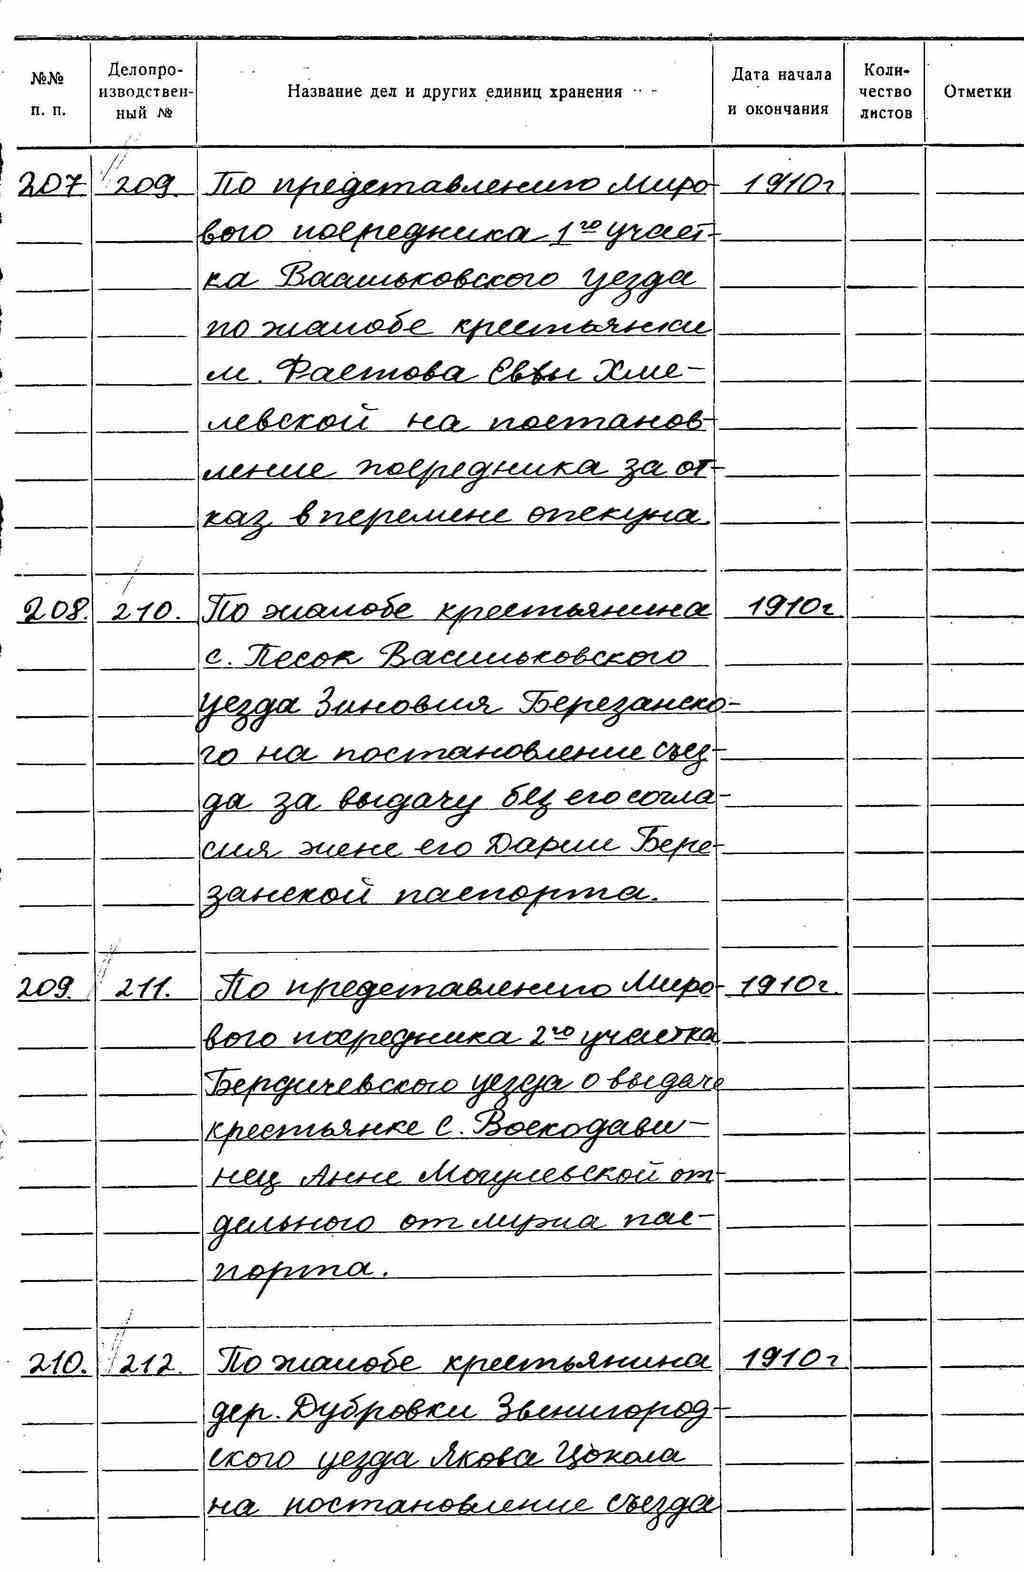 №№ п. п. Делопроизводственный № Название дел и других единиц хранения Дата начала и окончания Количество листов Отметки
207 209. По представлению Миро- 1910г
вого посредника 1го участ-
ка Васильковского уезда
по жалобе крестьянки
м. Фастова Еввы Хме-
левской на постанов-
ление посредника за от-
каз в перемене опекуна.
208. 210. По жалобе крестьянина 1910г
с. Песок Васильковского
уезда Зиновия Березанско-
го на постановление съез-
да за выдачу без его согла-
сия жене его Дарии Бере-
занской паспорта.
209. 211. По представлению Миро- 1910г.
вого посредника 2го участка
Бердичевского уезда о выдаче
крестьянке с. Воскодави-
нец Анне Могулевской от-
дельного от мужа пас-
порта.
210. 212. По жалобе крестьянина 1910г
дер. Дубровки Звенигород-
ского уезда Якова Цокола
на постановление съезда